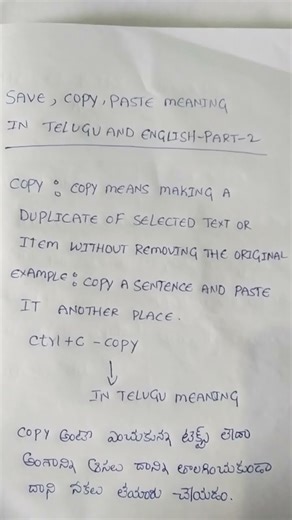 SAVE, COPY, PASTE MEANING
IN TELUGU AND ENGLISH-PART-2
COPY : COPY MEANS MAKING A
DUPLICATE OF SELECTED TEXT OR
ITEM WITHOUT REMOVING THE ORIGINAL
EXAMPLE : COPY A SENTENCE AND PASTE
IT ANOTHER PLACE.
Ctrl+C - COPY
↓
IN TELUGU MEANING
COPY అంటే ఎంచుకున్న టెక్స్ట్ లేదా
అంశాన్ని అసలు దాన్ని తొలగించకుండా
దాని నకలు తయారు చేయడం.